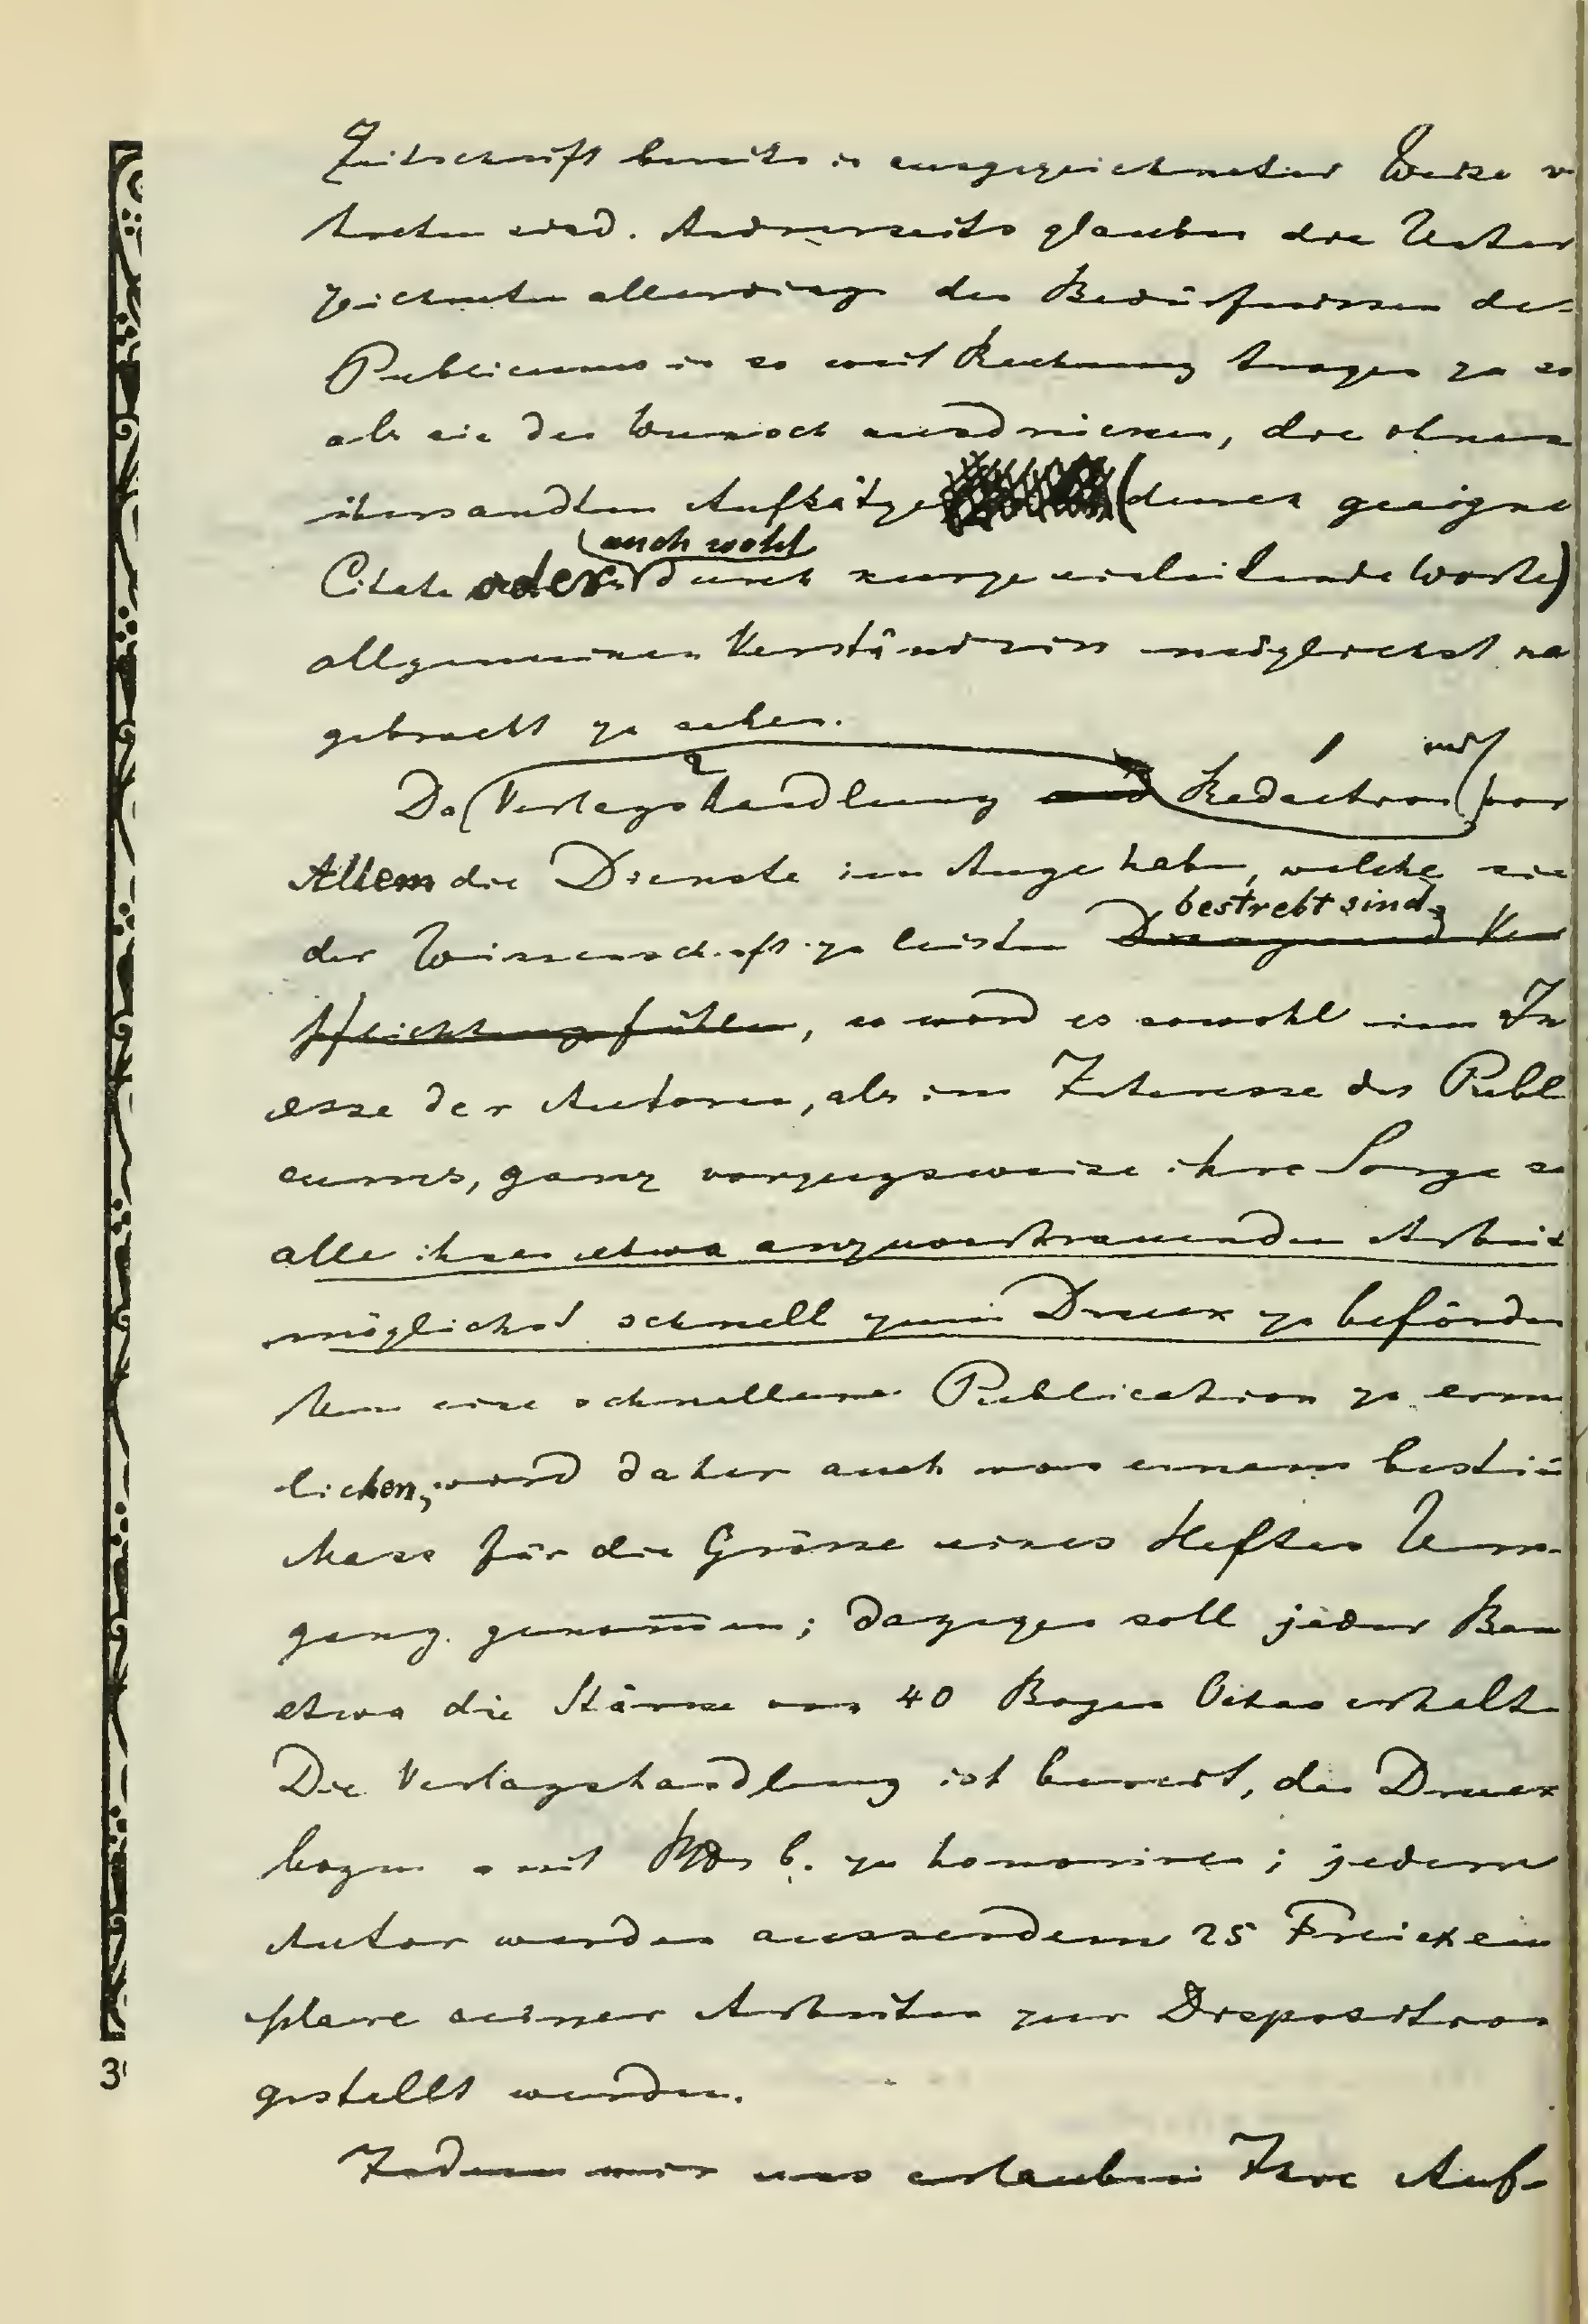 Zeitschrift bereits in ausgezeichneter Weise v
treten sind. Andrerseits glauben die Unter
zeichneten allerdings den Bedürfnissen des
Publicums in so weit Rechnung tragen zu so
als sie den Wunsch ausdrücken, die ihnen
übersandten Aufsätze (durch geeigne
auch wohl
Citate oder durch kurze einleitende Worte)
allgemeinen Verständniss möglichst na
gebracht zu sehen.
und
Da Verlagshandlung und Redaction vor
Allem die Dienste im Auge haben, welche sie
bestrebt sind,
der Wissenschaft zu leisten Ver
pflichtung fühlen, so wird es sowohl im In
esse der Autoren, als im Interesse des Publ
cums, ganz vorzugsweise ihre Sorge se
alle ihnen etwa anzuvertrauenden Arbeit
möglichst schnell zum Druck zu beförde
Um eine schnellere Publication zu erm
lichen, wird daher auch von einem bestim
Mass für die Grösse eines Heftes Um-
gang genom̅en; dagegen soll jeder Ban
etwa die Stärke von 40 Bogen Octav erhalt
Die Verlagshandlung ist bereit, den Druck
bogen mit zu honoriren; jedem
Autor werden ausserdem 25 Freiexem
plare seiner Arbeiten zur Disposition
gestellt werden.
Indem wir uns erlauben Ihre Auf-
3